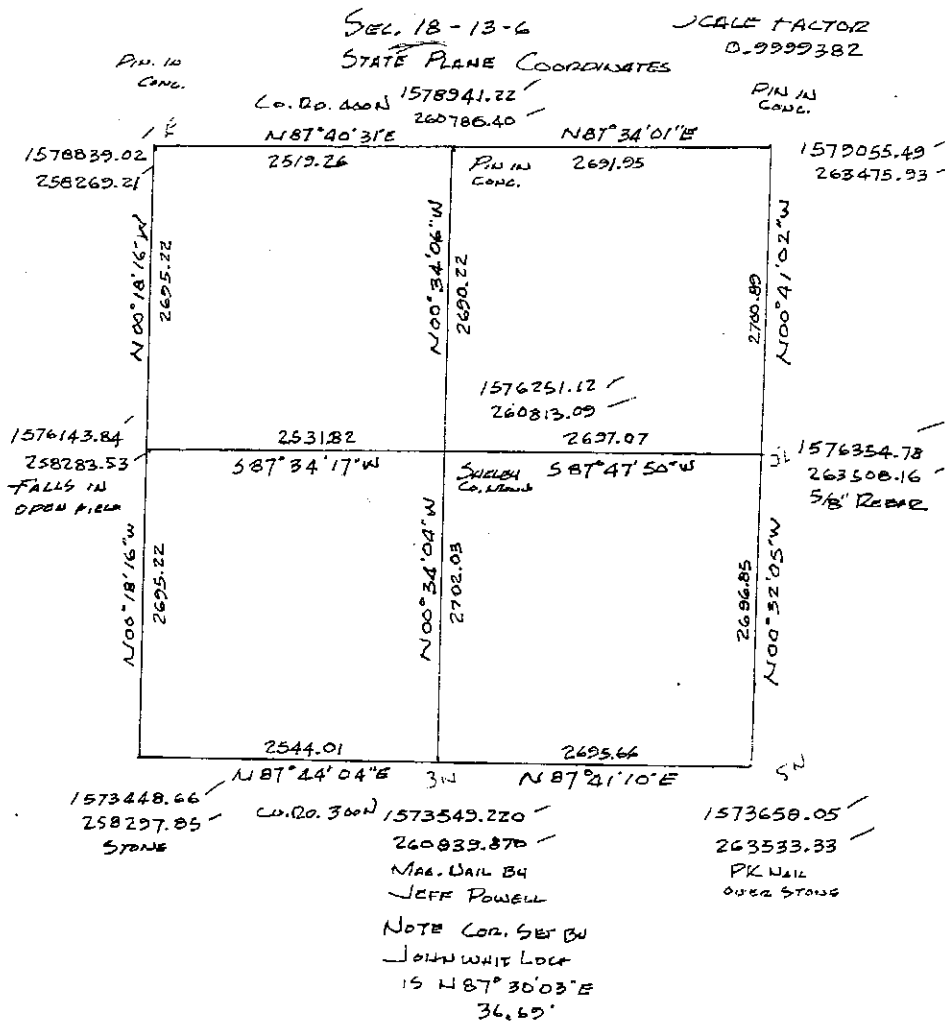 SEC. 18-13-6
SCALE FACTOR
0.9999382
STATE PLANE COORDINATES
PIN. IN
CONC.
CO.RD. 400N
1578941.22
260786.40
PIN IN
CONC.
N87°40'31"E
N87°34'01"E
1578839.02
258269.21
2519.26
PIN IN
CONC.
2691.95
1579055.49
263475.93
N00°18'16"W
2695.22
N00°34'06"W
2690.22
2700.89
N00°41'02"W
1576251.12
260813.09
1576143.84
258283.53
FALLS IN
OPEN FIELD
2531.82
S87°34'17"W
SHELBY
2697.07
S87°47'50"W
1576354.78
263508.16
5/8" REBAR
N00°18'16"W
2695.22
N00°34'04"W
2702.03
2696.85
N00°32'05"W
2544.01
2695.66
N87°44'04"E
N87°41'10"E
1573448.66
258297.85
STONE
CO.RD. 300N
1573549.220
260839.870
MAG. NAIL BY
JEFF POWELL
1573658.05
263533.33
PK NAIL
OVER STONE
NOTE COR. SET BY
JOHN
IS N87°30'03"E
36.69'